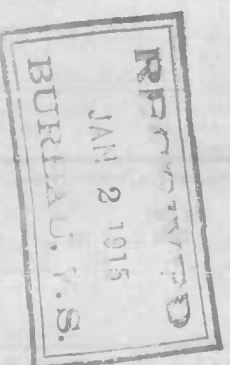 RECEIVED
JAN 2 1915
BUREAU, V.S.